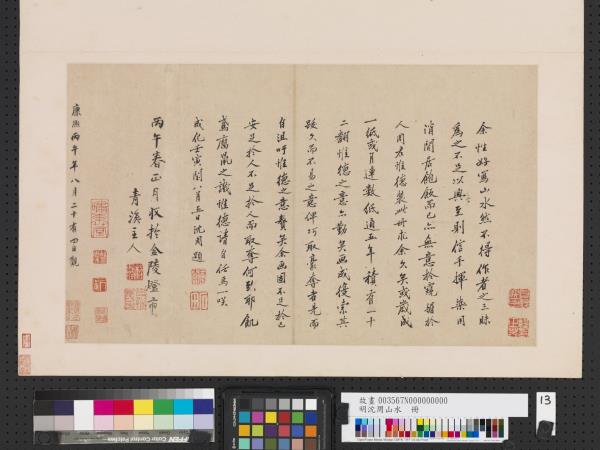 余性好寫山水然不得作者之三昧
為之不足以興至則信手揮染用
消閒居飽飯而已亦無意於窺於
人周君惟德裝冊求余久矣或歲成
一紙或月連數紙通五年積有一十
二翻惟德之意亦勤矣畫成復索其
跋久而不易之意俾巧取豪奪者見而
自沮吁惟德之意贅矣余畫固不足於己
安足於人不足於人而取奪何到耶飢
鳶腐鼠之譏惟德請自任焉一咲
成化壬寅閏八月五日沈周題
丙午春正月收於金陵燈市
青溪主人
康熙丙午年八月二十有四日觀
故畫 003567N000000000
明沈周山水 冊
13